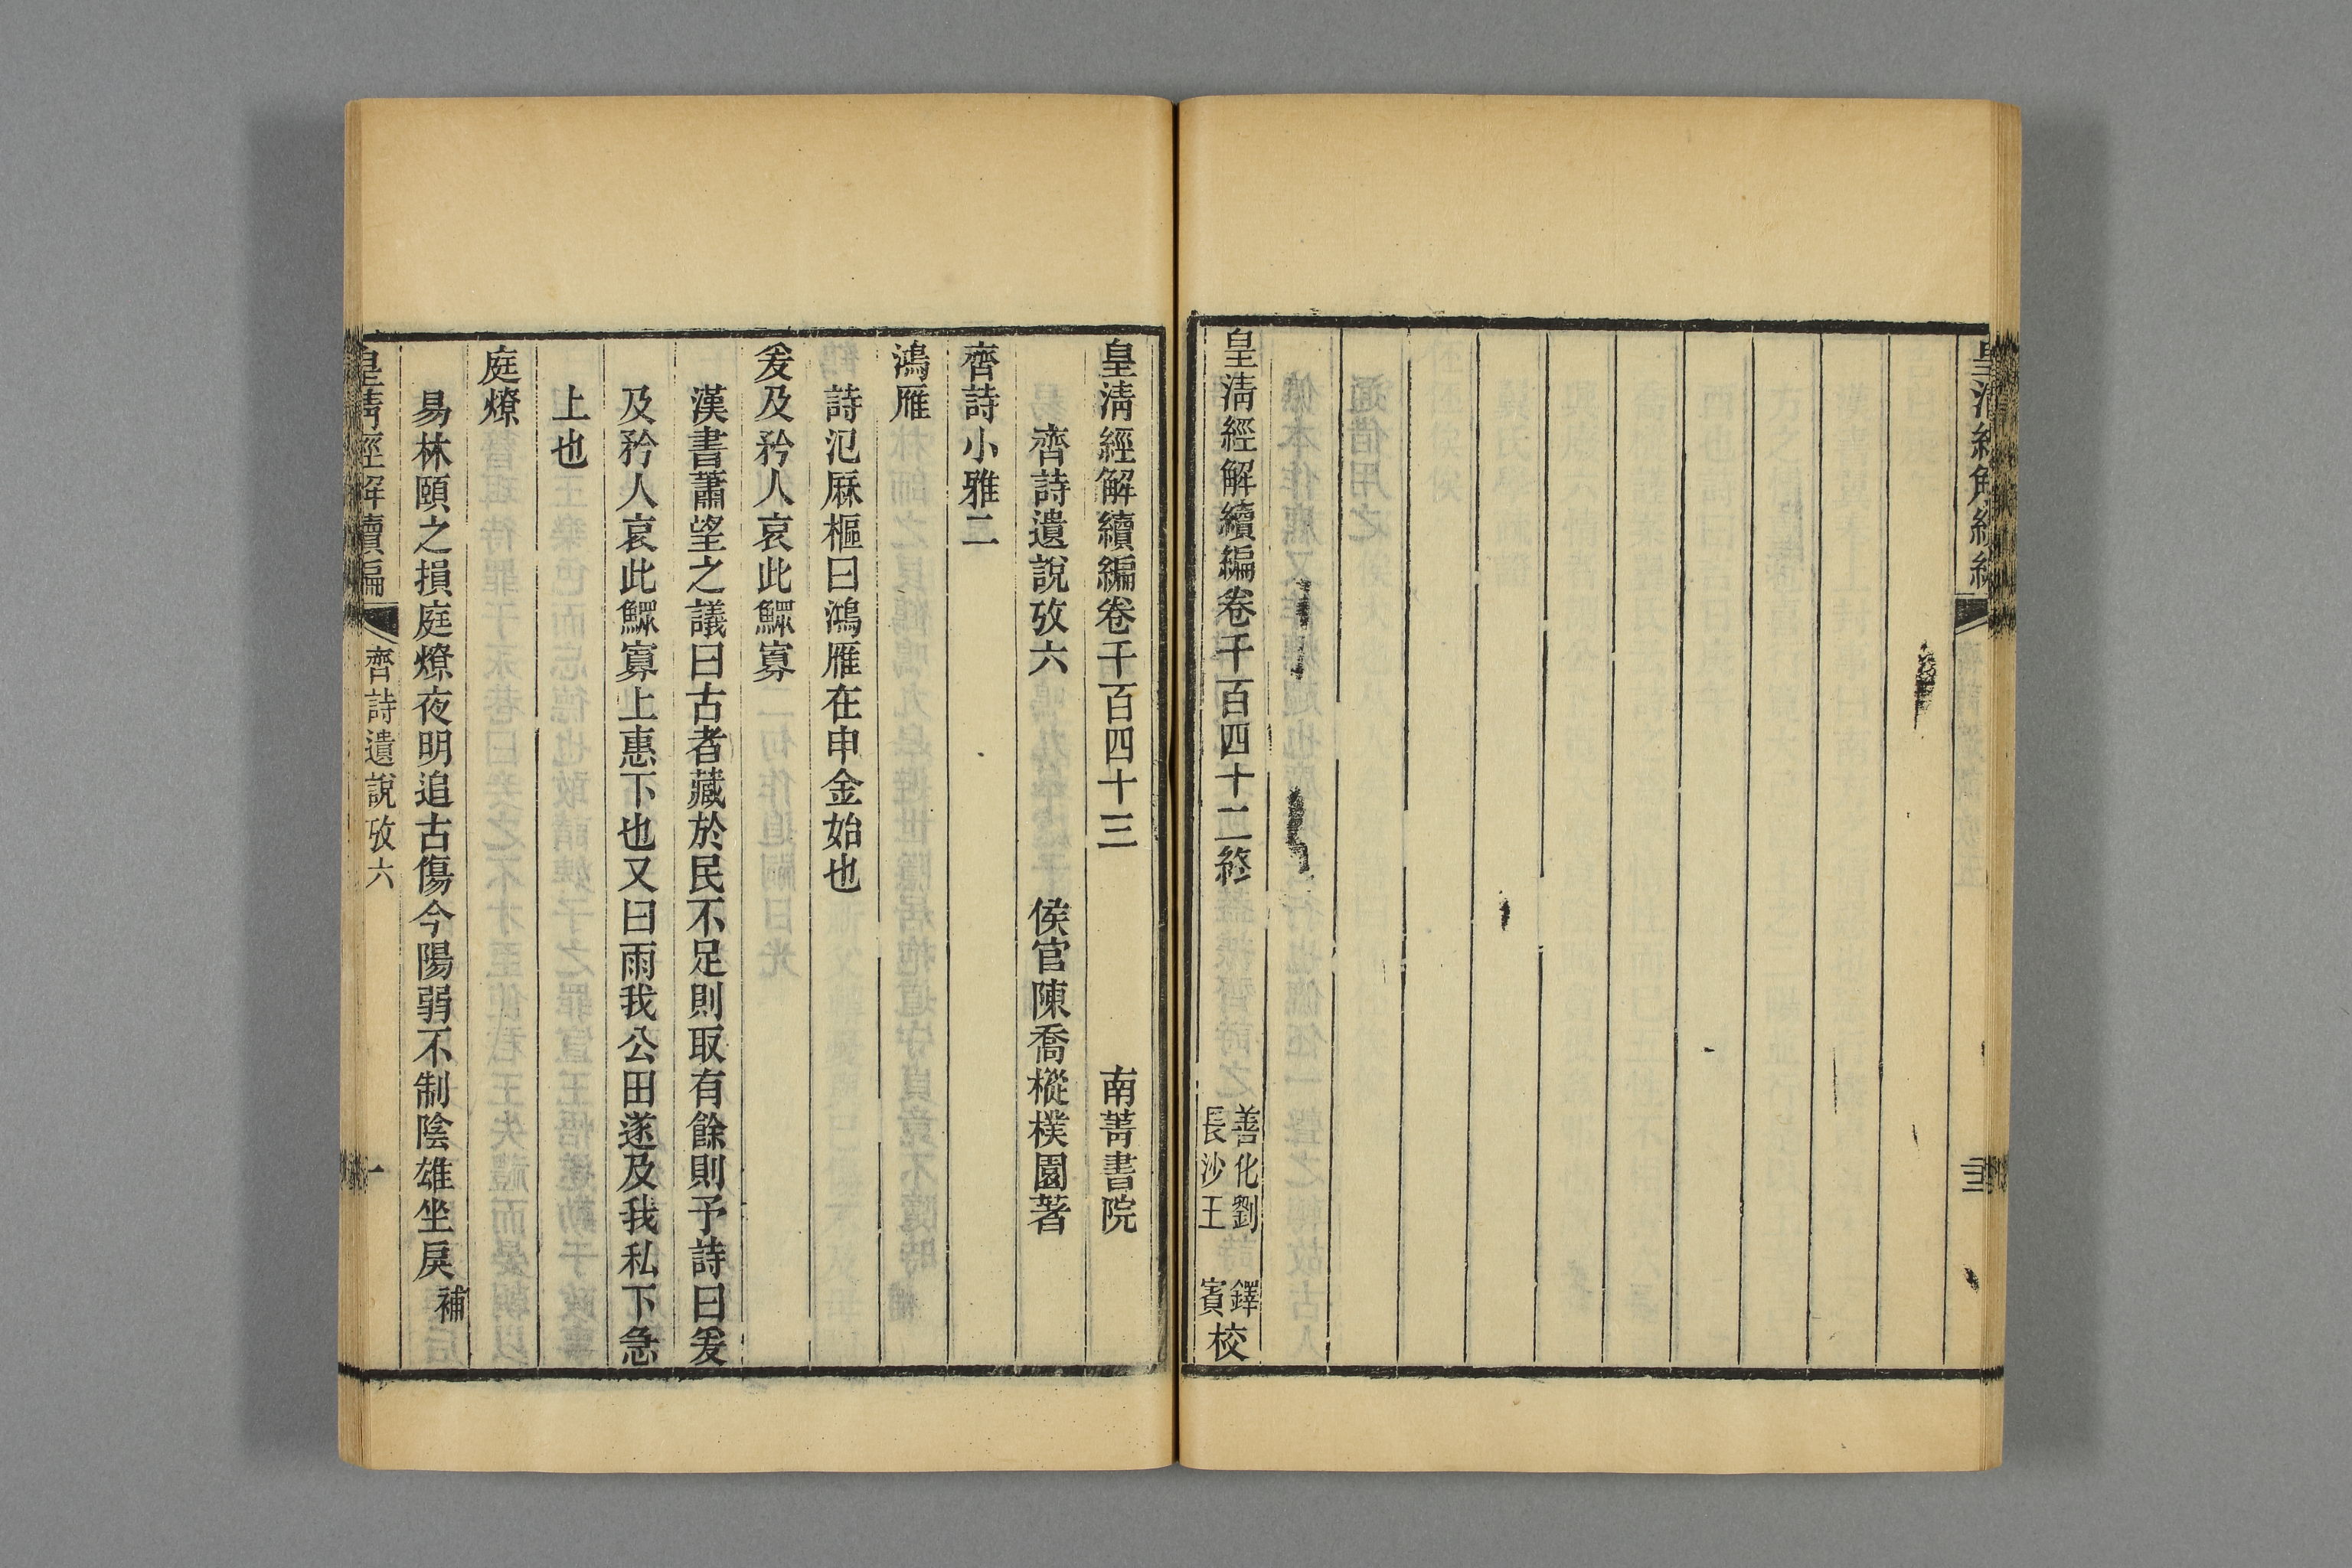 皇清經解續編卷千百四十二終
善化劉鐸
長沙王賓
校
皇清經解續編卷千百四十三
南菁書院
齊詩遺說攷六
侯官陳喬樅樸園著
齊詩小雅二
鴻雁
詩氾厤樞曰鴻雁在申金始也
爰及矜人哀此鰥寡
漢書蕭望之議曰古者藏於民不足則取有餘則予詩曰爰
及矜人哀此鰥寡上惠下也又曰雨我公田遂及我私下急
上也
庭燎
易林頤之損庭燎夜明追古傷今陽弱不制陰雄坐戾補
皇清經解續編
齊詩遺說攷六
一